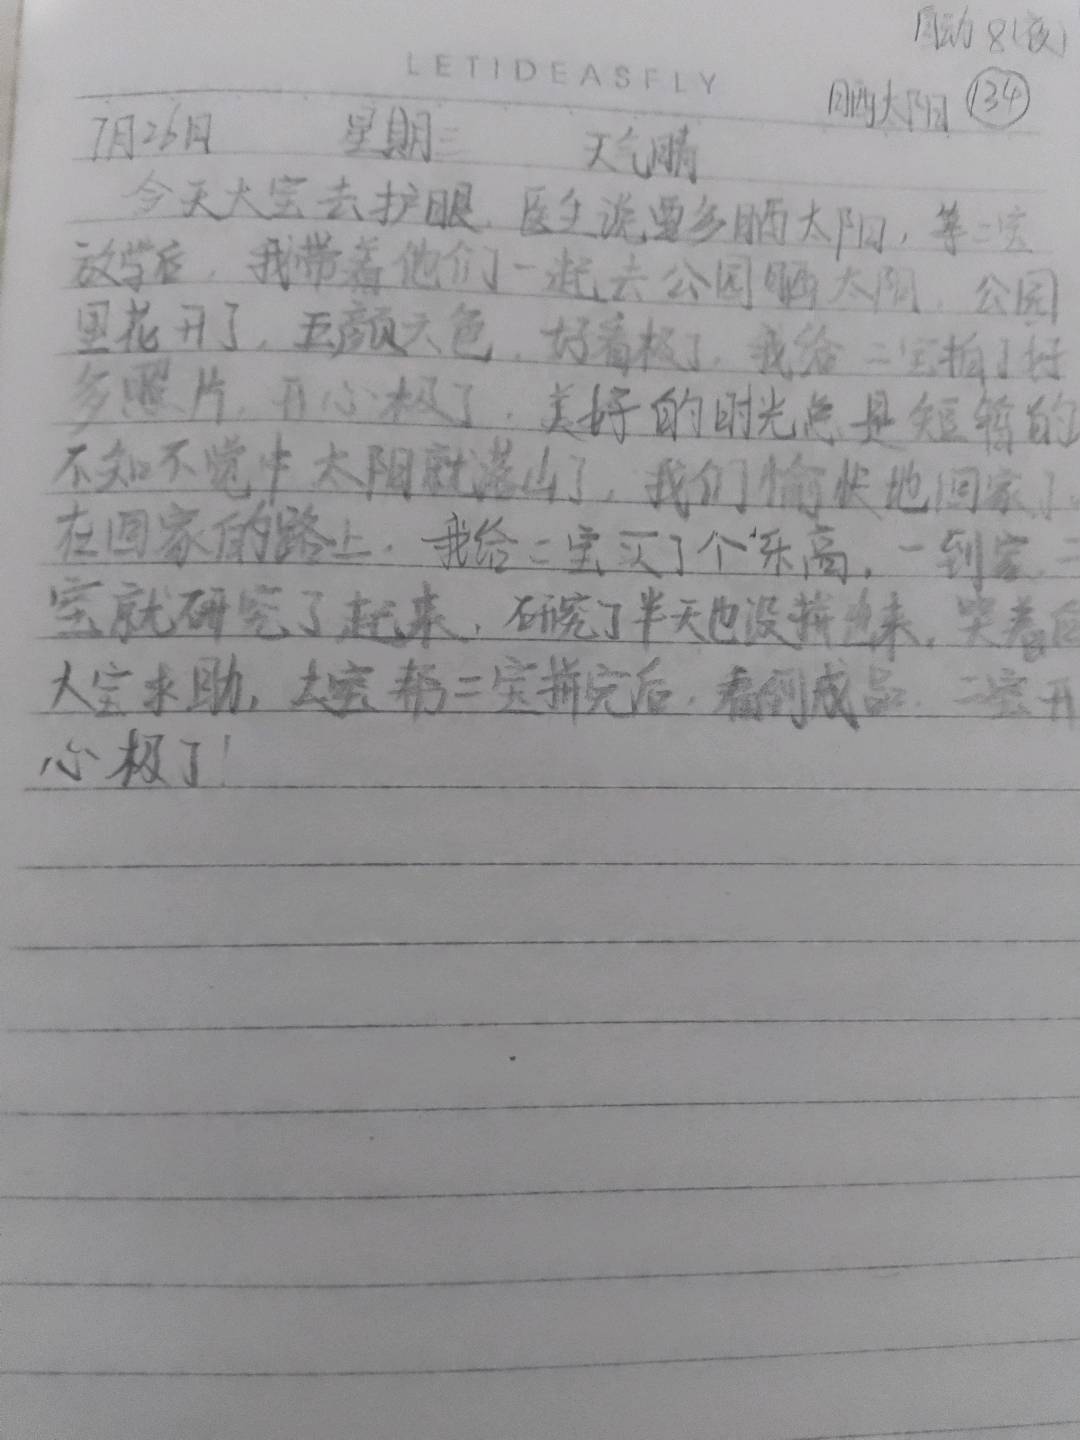 自动8(夜)
LETIDEASFLY
晒太阳 134
7月26日 星期三 天气晴
今天大宝去护眼,医生说要多晒太阳,等二宝
放学后,我带着他们一起去公园晒太阳,公园
里花开了,五颜六色,好看极了,我给二宝拍了好
多照片,开心极了,美好的时光总是短暂的
不知不觉中太阳就落山了,我们愉快地回家了。
在回家的路上,我给二宝买了个乐高,一到家,二
宝就研究了起来,研究了半天也没拼出来,哭着向
大宝求助,大宝帮二宝拼完后,看到成品,二宝开
心极了!